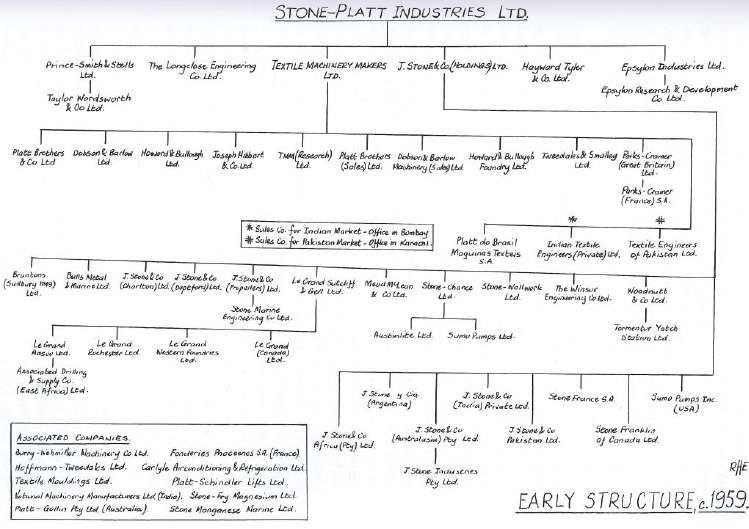 STONE-PLATT INDUSTRIES LTD.
Prince-Smith & Stells
Ltd.
The Longclose Engineering
Co. Ltd.
TEXTILE MACHINERY MAKERS
LTD.
J. STONE & CO (HOLDINGS) LTD.
Hayward Tyler
& Co. Ltd.
Epsylon Industries Ltd.
Taylor Wordsworth
& Co Ltd.
Epsylon Research & Development
Co Ltd.
Platt Brothers
& Co Ltd
Dobson & Barlow
Ltd.
Howard & Bullough
Ltd.
Joseph Hibbert
& Co. Ltd.
TMM (Research)
Ltd.
Platt Brothers
(Sales) Ltd.
Dobson & Barlow
Machinery (Sales) Ltd.
Howard & Bullough
Foundry Ltd.
Tweedales & Smalley
Ltd.
Parks-Cramer
(Great Britain)
Ltd.
Parks-Cramer
(France) S.A.
* Sales Co. for Indian Market - Office in Bombay.
# Sales Co. for Pakistan Market - Office in Karachi.
Platt do Brasil
Maquinas Texteis
S.A.
*
Indian Textile
Engineers (Private) Ltd.
#
Textile Engineers
of Pakistan Ltd.
Bruntons
(Sudbury 1919)
Ltd.
Bulls Metal
& Marine Ltd.
J. Stone & Co
(Charlton) Ltd.
J. Stone & Co
(Deptford) Ltd.
J. Stone & Co
(Propellers) Ltd.
Le Grand Sutcliff
& Gell Ltd.
Mead McLean
& Co Ltd.
Stone-Chance
Ltd.
Stone-Wallwork
Ltd.
The Winsor
Engineering Co Ltd.
Woodnutt
& Co Ltd.
Stone Marine
Engineering Co Ltd.
Austinlite Ltd.
Sumo Pumps Ltd.
Tormentor Yacht
Station Ltd.
Le Grand
Adsco Ltd.
Le Grand
Rochester Ltd.
Le Grand
Western Foundries
Ltd.
Le Grand
(Canada)
Ltd.
Associated Drilling
& Supply Co.
(East Africa) Ltd.
J. Stone y Cia
(Argentina)
J. Stone & Co
(India) Private Ltd.
Stone France S.A.
Sumo Pumps Inc.
(USA)
J. Stone & Co
Africa (Pty) Ltd.
J. Stone & Co
(Australasia) Pty Ltd.
J. Stone & Co
Pakistan Ltd.
Stone Franklin
of Canada Ltd.
J. Stone Industries
Pty Ltd.
ASSOCIATED COMPANIES.
Barry-Wehmiller Machinery Co Ltd.
Fonderies Phoceenes S.A. (France).
Hoffmann-Tweedales Ltd.
Carlyle Airconditioning & Refrigeration Ltd.
Textile Mouldings Ltd.
Platt-Schindler Lifts Ltd.
National Machinery Manufacturers Ltd (India).
Stone-Fry Magnesium Ltd.
Platt-Gollin Pty Ltd (Australia).
Stone Manganese Marine Ltd.
RHE
EARLY STRUCTURE, c.1959.